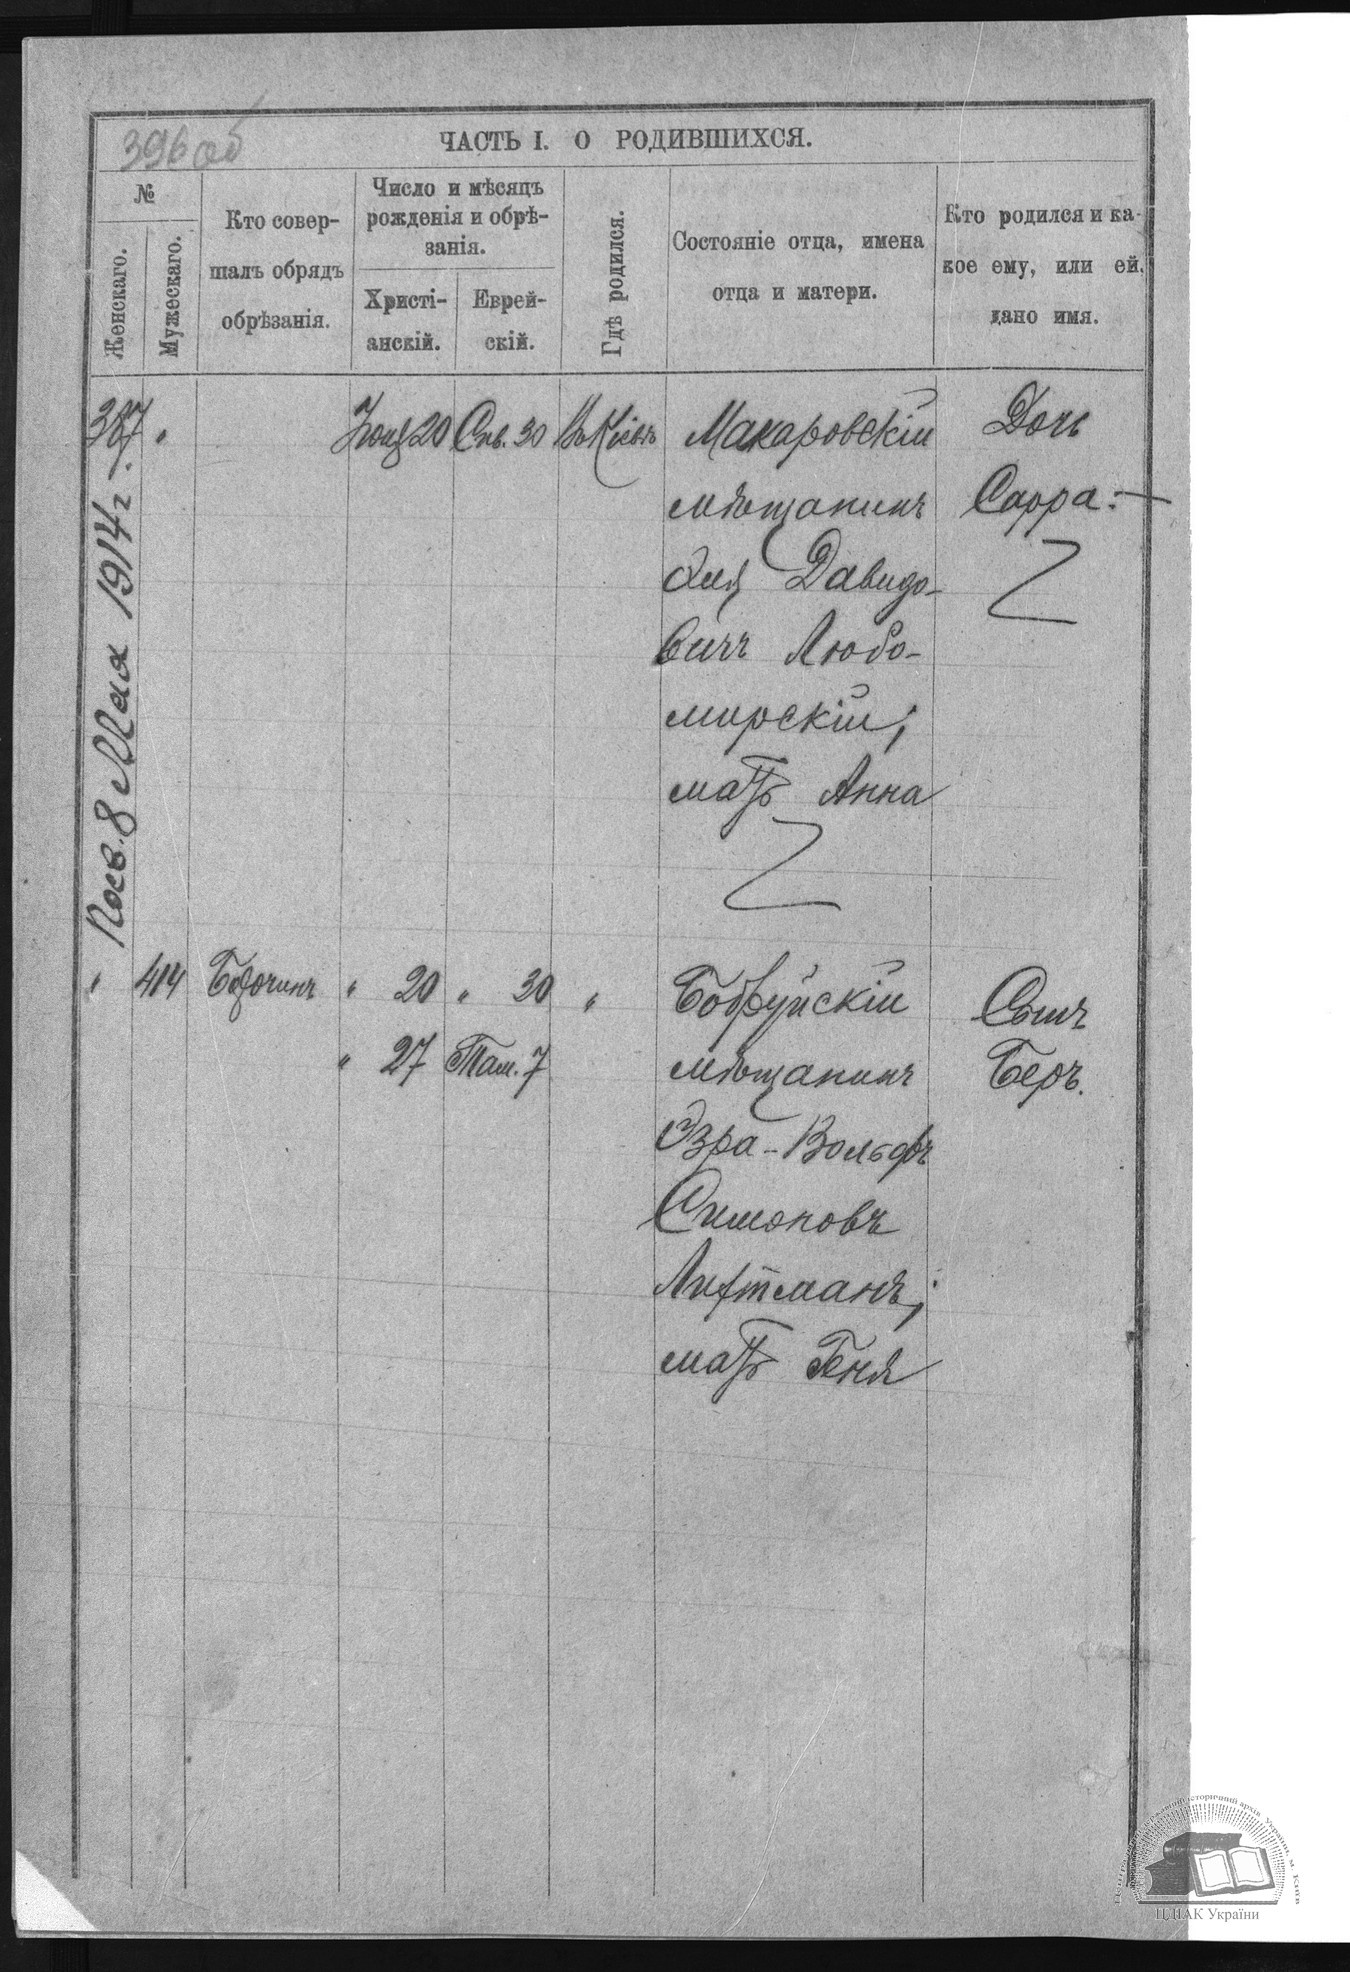 396 об
ЧАСТЬ I. О РОДИВШИХСЯ.
№
Женскаго.
Мужескаго.
Кто совер-
шалъ обрядъ
обрѣзанія.
Число и мѣсяцъ
рожденія и обрѣ-
занія.
Христі-
анскій.
Еврей-
скій.
Гдѣ родился.
Состояніе отца, имена
отца и матери.
Кто родился и ка-
кое ему, или ей.
дано имя.
387 "
Іюня 20
Сив. 30
Въ Кіевѣ
Макаровскій
мѣщанинъ
Давидо-
вичъ Любо-
мирскій;
мать Анна
Дочь
Сарра.—
8 Мая 1914 г.
" 414
" 20
" 30
"
" 27
Там. 7
Бобруйскій
мѣщанинъ
Эзра-Вольфъ
Симоновъ
Лифтманъ;
мать Геня
Сынъ
Беръ.
ЦДІАК України